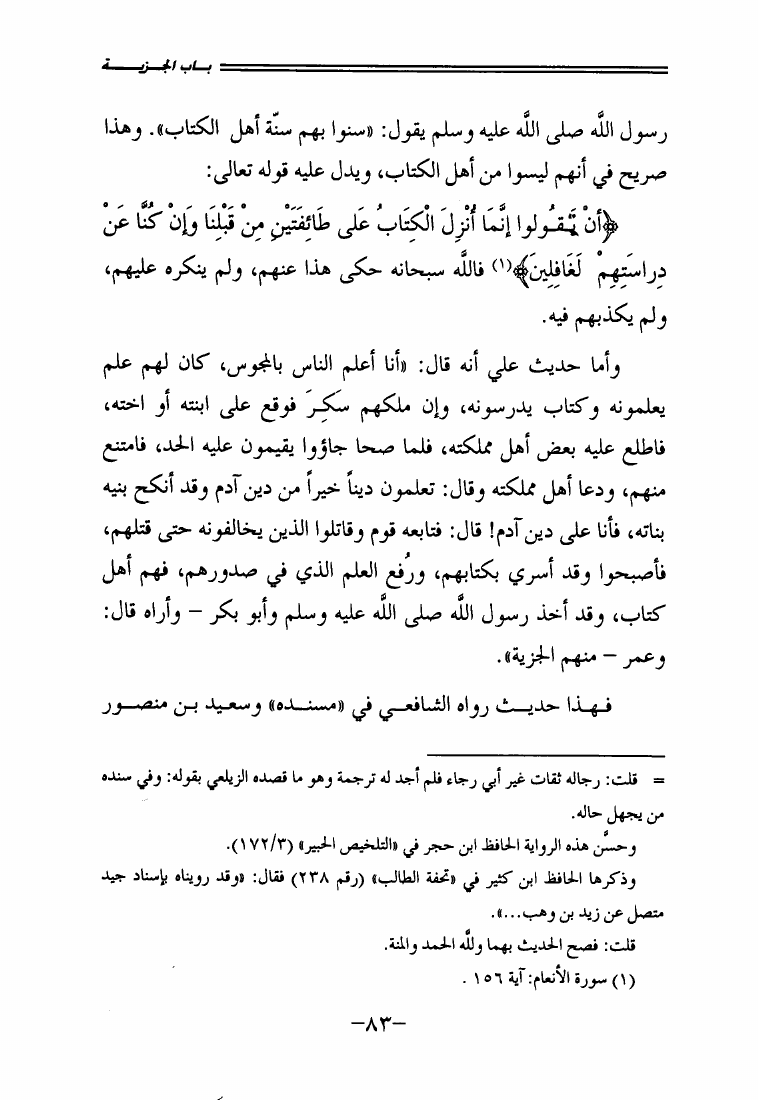 بـاب الجـزيـــة
رسول اللَّه صلى اللَّه عليه وسلم يقول: «سنوا بهم سنّة أهل الكتاب». وهذا
صريح في أنهم ليسوا من أهل الكتاب، ويدل عليه قوله تعالى:
﴿أَنْ تَـقُـولوا إِنَّمَا أُنْزِلَ الْكِتَابُ عَلى طَائِفَتَيْنِ مِنْ قَبْلِنَا وَإِنْ كُنَّا عَنْ
دِراسَتِهِمْ لَغَافِلِينَ﴾(١) فاللَّه سبحانه حكى هذا عنهم، ولم ينكره عليهم،
ولم يكذبهم فيه.
وأما حديث علي أنه قال: «أنا أعلم الناس بالمجوس، كان لهم علم
يعلمونه وكتاب يدرسونه، وإن ملكهم سَكِرَ فوقع على ابنته أو اخته،
فاطلع عليه بعض أهل مملكته، فلما صحا جاؤوا يقيمون عليه الحد، فامتنع
منهم، ودعا أهل مملكته وقال: تعلمون ديناً خيراً من دين آدم وقد أنكح بنيه
بناته، فأنا على دين آدم! قال: فتابعه قوم وقاتلوا الذين يخالفونه حتى قتلهم،
فأصبحوا وقد أسري بكتابهم، ورُفع العلم الذي في صدورهم، فهم أهل
كتاب، وقد أخذ رسول اللَّه صلى اللَّه عليه وسلم وأبو بكر – وأراه قال:
وعمر – منهم الجزية».
فـهـذا حديـــث رواه الشافعـــي في «مسنـــده» وسعـيـد بـن منصـــور
= قلت: رجاله ثقات غير أبي رجاء فلم أجد له ترجمة وهو ما قصده الزيلعي بقوله: وفي سنده
من يجهل حاله.
وحسَّن هذه الرواية الحافظ ابن حجر في «التلخيص الحبير» (١٧٢/٣).
وذكرها الحافظ ابن كثير في «تحفة الطالب» (رقم ٢٣٨) فقال: «وقد رويناه بإسناد جيد
متصل عن زيد بن وهب...».
قلت: فصح الحديث بهما وللَّه الحمد والمنة.
(١) سورة الأنعام: آية ١٥٦ .
–٨٣–